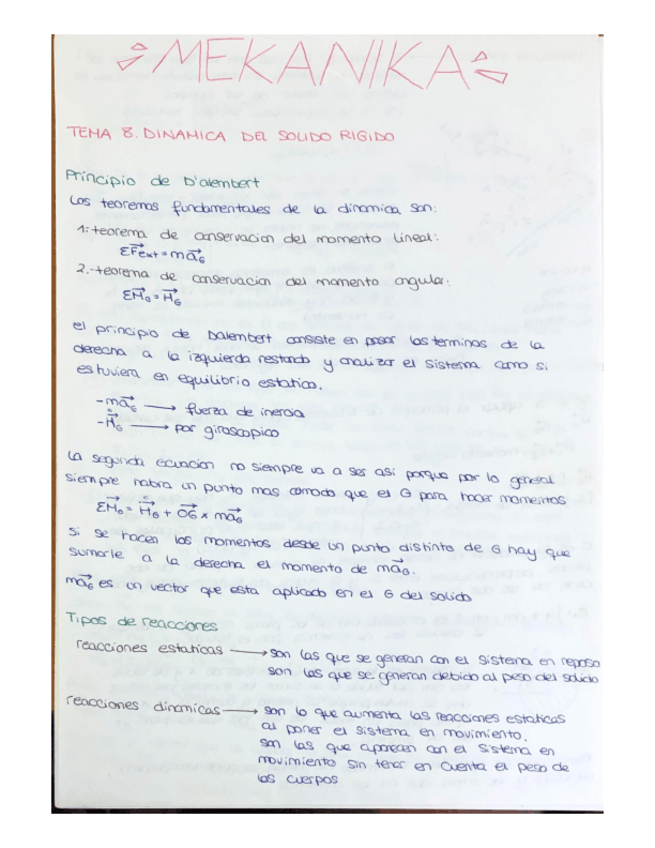 MEKANIKA
TEMA 8. DINAMICA DEL SOLIDO RIGIDO
Principio de D'alembert
Los teoremas fundamentales de la dinamica son:
1.-teorema de conservacion del momento lineal:
ΣF⃗ext = ma⃗G
2.-teorema de conservacion del momento angular:
ΣM⃗G = Ḣ⃗G
el principio de Dalembert consiste en pasar los terminos de la
derecha a la izquierda restando y analizar el sistema como si
estuviera en equilibrio estatico.
-ma⃗G ⟶ fuerza de inercia
-Ḣ⃗G ⟶ par giroscopico
La segunda ecuacion no siempre va a ser asi porque por lo general
siempre habra un punto mas comodo que el G para hacer momentos
ΣM⃗O = Ḣ⃗G + OG⃗ x ma⃗G
Si se hacen los momentos desde un punto distinto de G hay que
sumarle a la derecha el momento de ma⃗G.
ma⃗G es un vector que esta aplicado en el G del solido
Tipos de reacciones
reacciones estaticas ⟶ son las que se generan con el sistema en reposo
son las que se generan debido al peso del solido
reacciones dinamicas ⟶ son lo que aumenta las reacciones estaticas
al poner el sistema en movimiento.
son las que aparecen con el sistema en
movimiento sin tener en cuenta el peso de
los cuerpos